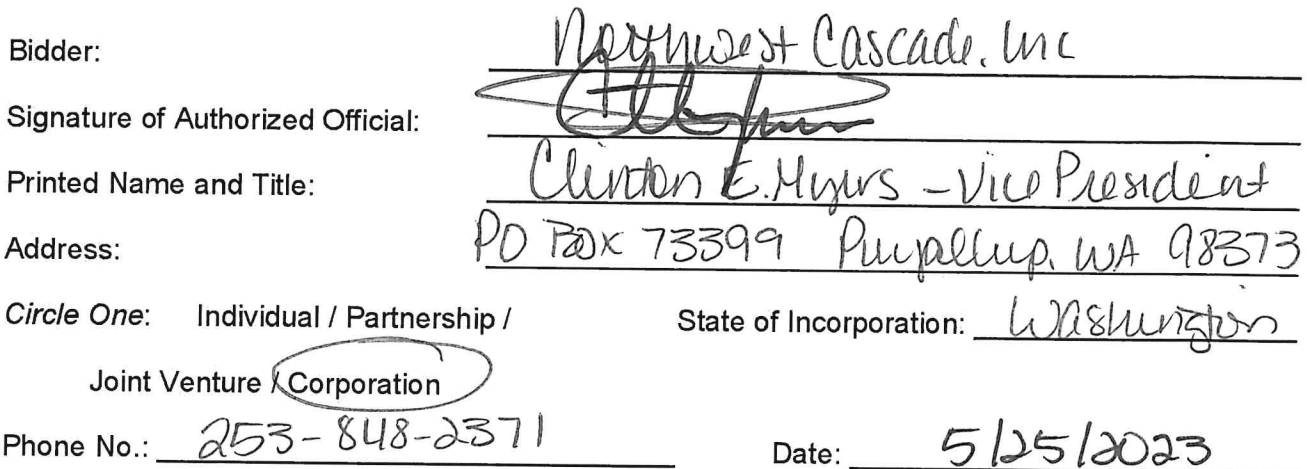 Bidder: Northwest Cascade, Inc
Signature of Authorized Official:
Printed Name and Title: Clinton E. Myers - Vice President
Address: PO Box 73399 Puyallup, WA 98373
Circle One: Individual / Partnership / State of Incorporation: Washington
Joint Venture / Corporation
Phone No.: 253-848-2371 Date: 5/25/2023